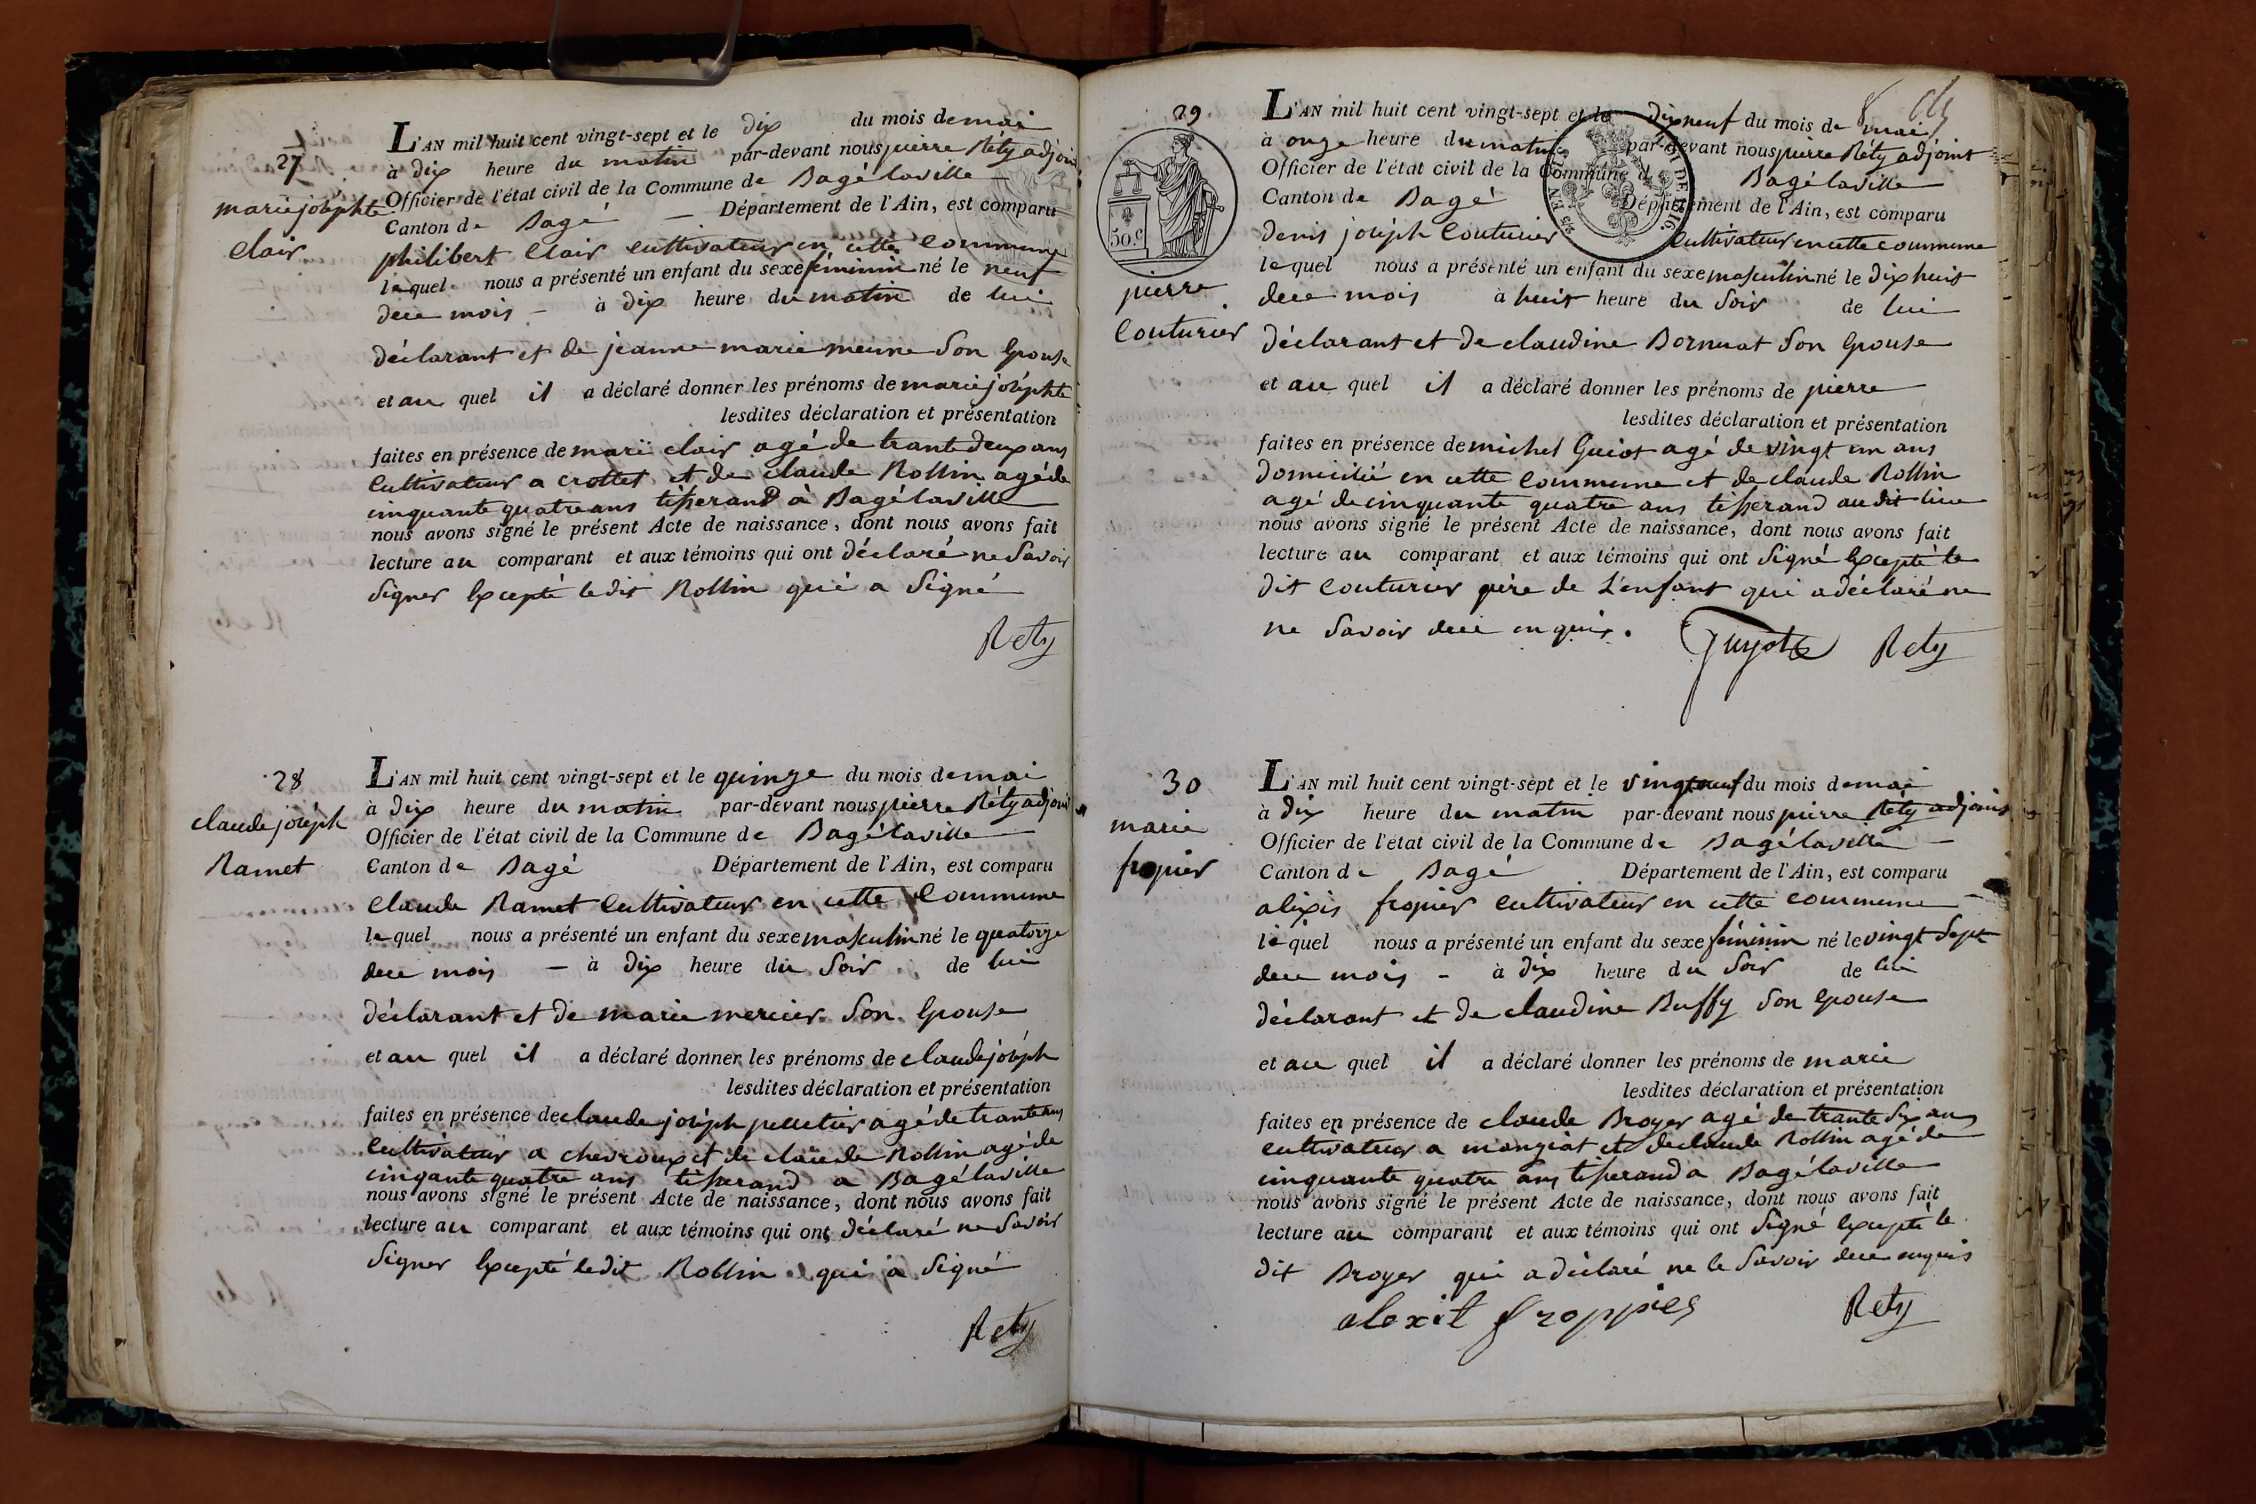 27
marie joséphte
Clair
L'AN mil huit cent vingt-sept et le dix du mois de mai
à dix heure du matin par-devant nous pierre Réty adjoint
Officier de l'état civil de la Commune de Bagé laville
Canton de Bagé — Département de l'Ain, est comparu
philibert Clair Cultivateur en cette Commune
lequel nous a présenté un enfant du sexe féminin né le neuf
du mois — à dix heure du matin de lui
déclarant et de jeanne marie meune Son Epouse
et au quel il a déclaré donner les prénoms de marie joséphte
lesdites déclaration et présentation
faites en présence de clair agé de trante deux ans
Cultivateur a crottet et de claude Rollin agé de
cinquante quatre ans tisserand à Bagé laville
nous avons signé le présent Acte de naissance, dont nous avons fait
lecture au comparant et aux témoins qui ont déclaré ne Savoir
Signer Excepté le dit Rollin qui a Signé
Rety
28
claude joséph
Ramet
L'AN mil huit cent vingt-sept et le quinze du mois de mai
à dix heure du matin par-devant nous pierre Réty adjoint
Officier de l'état civil de la Commune de Bagé laville
Canton de Bagé Département de l'Ain, est comparu
Claude Ramet Cultivateur en cette Commune
lequel nous a présenté un enfant du sexe masculin né le quatorze
du mois — à dix heure du Soir de lui
déclarant et de marie mercier Son Epouse
et au quel il a déclaré donner les prénoms de claude joséph
lesdites déclaration et présentation
faites en présence de claude joséph pelletier agé de trante ans
Cultivateur a chevroux et de claude Rollin agé de
cinqante quatre ans tisserand a Bagé laville
nous avons signé le présent Acte de naissance, dont nous avons fait
lecture au comparant et aux témoins qui ont déclaré ne Savoir
Signer Excepté le dit Rollin qui à Signé
Rety
29
50 c
pierre
Couturier
L'AN mil huit cent vingt-sept et le dix neuf du mois de mai
à onze heure du matin par-devant nous pierre Réty adjoint
Officier de l'état civil de la Commune de Bagé laville
Canton de Bagé Département de l'Ain, est comparu
denis joséph Couturier Cultivateur en cette commune
lequel nous a présenté un enfant du sexe masculin né le dix huit
du mois à huit heure du Soir de lui
déclarant et de claudine Bornuat Son Epouse
et au quel il a déclaré donner les prénoms de pierre
lesdites déclaration et présentation
faites en présence de michel Guiot agé de vingt un ans
domicilié en cette Commune et de claude Rollin
agé de cinquante quatre ans tisserand au dit lieu
nous avons signé le présent Acte de naissance, dont nous avons fait
lecture au comparant et aux témoins qui ont Signé Excepté le
dit Couturier père de L'enfant qui a déclaré ne
ne Savoir de ce enquis.
Guyot Rety
30
marie
fropier
L'AN mil huit cent vingt-sept et le vingt neuf du mois de mai
à dix heure du matin par-devant nous pierre Réty adjoint
Officier de l'état civil de la Commune de Bagé laville —
Canton de Bagé Département de l'Ain, est comparu
alixis fropier Cultivateur en cette commune —
lequel nous a présenté un enfant du sexe féminin né le vingt Sept
du mois — à dix heure du Soir de lui
déclarant et de claudine Buffy Son Epouse
et au quel il a déclaré donner les prénoms de marie
lesdites déclaration et présentation
faites en présence de claude Broyer agé de trante Six ans
cultivateur a manziat et de claude Rollin agé de
cinquante quatre ans tisserand a Bagé laville
nous avons signé le présent Acte de naissance, dont nous avons fait
lecture au comparant et aux témoins qui ont Signé Excepté le
dit Broyer qui a déclaré ne le Savoir de ce enquis
alexit froppier Rety